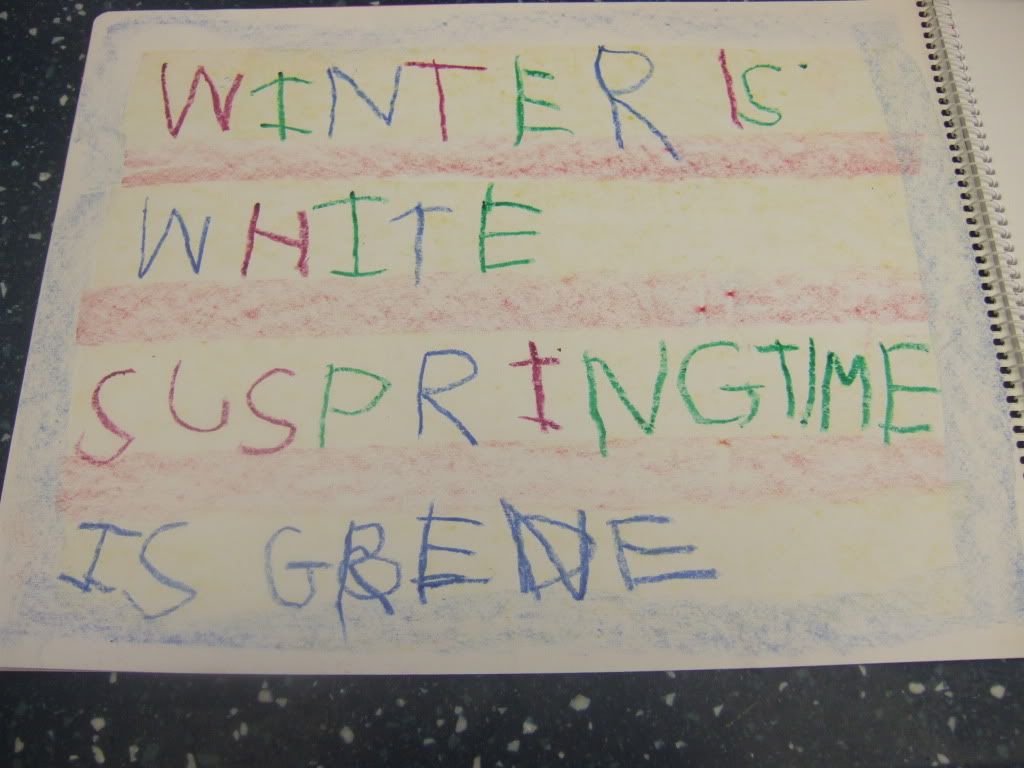 WINTER IS
WHITE
SUSPRINGTIME
IS GRENE